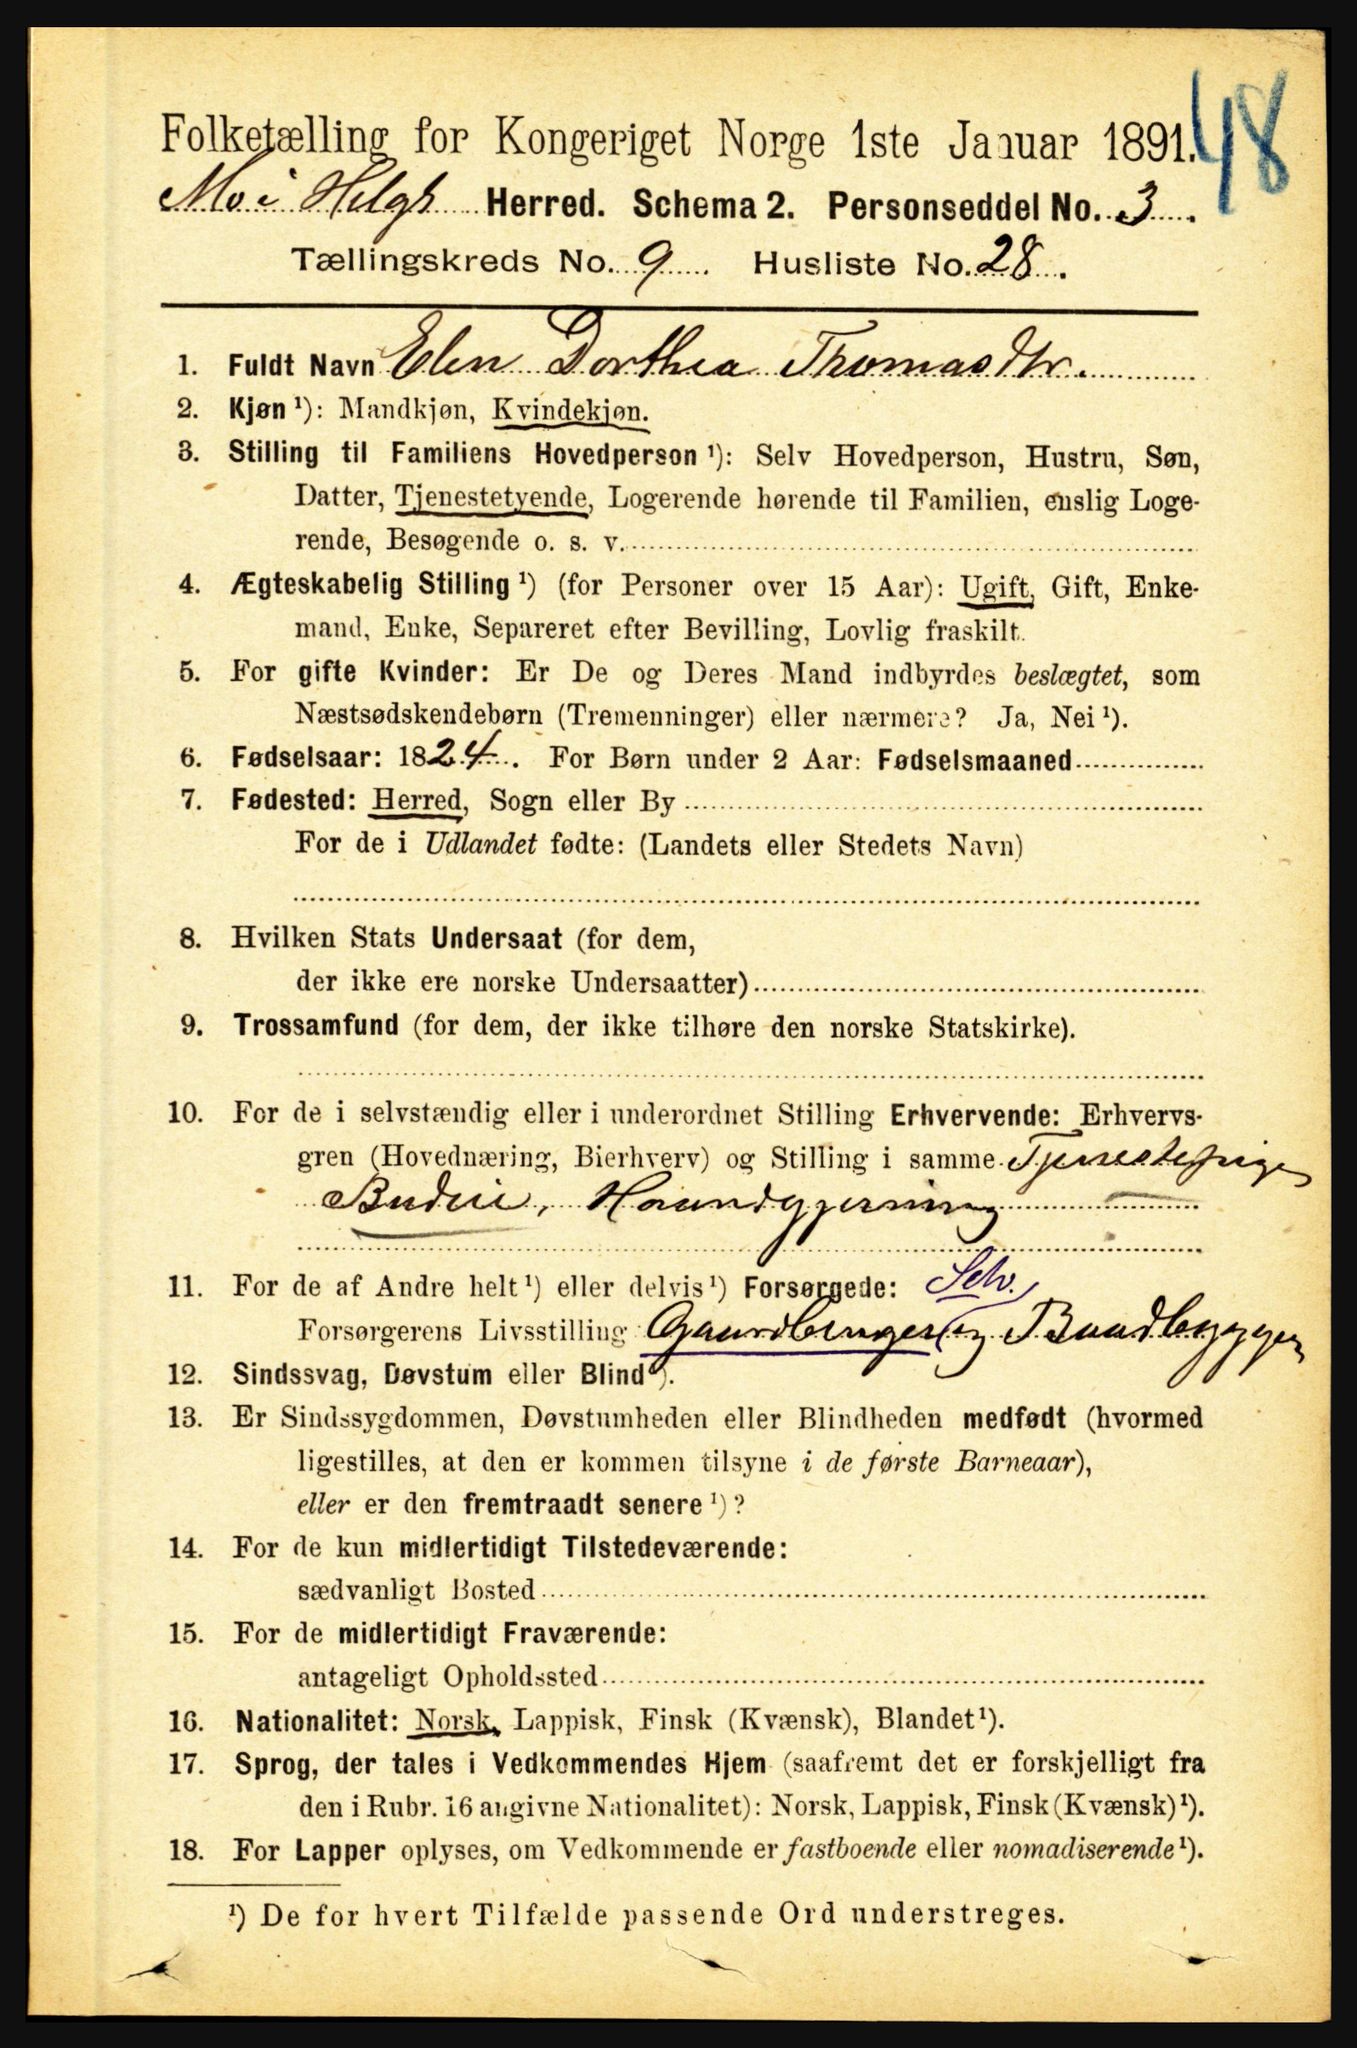 48
Folketælling for Kongeriget Norge 1ste Januar 1891.
Mo i Helgl Herred. Schema 2. Personseddel No. 3.
Tællingskreds No. 9 Husliste No. 28.
1. Fuldt Navn Elen Dorthea Thomasdtr.
2. Kjøn ¹): Mandkjøn, Kvindekjøn.
3. Stilling til Familiens Hovedperson ¹): Selv Hovedperson, Hustru, Søn,
Datter, Tjenestetyende, Logerende hørende til Familien, enslig Loge-
rende, Besøgende o. s. v.
4. Ægteskabelig Stilling ¹) (for Personer over 15 Aar): Ugift, Gift, Enke-
mand, Enke, Separeret efter Bevilling, Lovlig fraskilt.
5. For gifte Kvinder: Er De og Deres Mand indbyrdes beslægtet, som
Næstsødskendebørn (Tremenninger) eller nærmere? Ja, Nei ¹).
6. Fødselsaar: 1824. For Børn under 2 Aar: Fødselsmaaned
7. Fødested: Herred, Sogn eller By
For de i Udlandet fødte: (Landets eller Stedets Navn)
8. Hvilken Stats Undersaat (for dem,
der ikke ere norske Undersaatter)
9. Trossamfund (for dem, der ikke tilhøre den norske Statskirke).
10. For de i selvstændig eller i underordnet Stilling Erhvervende: Erhvervs-
gren (Hovednæring, Bierhverv) og Stilling i samme Tjenestepige
Budeie, Haandgjerning
11. For de af Andre helt ¹) eller delvis ¹) Forsørgede: Selv.
Forsørgerens Livsstilling Gaardbruger og Baadbygger
12. Sindssvag, Døvstum eller Blind ¹).
13. Er Sindssygdommen, Døvstumheden eller Blindheden medfødt (hvormed
ligestilles, at den er kommen tilsyne i de første Barneaar),
eller er den fremtraadt senere ¹)?
14. For de kun midlertidigt Tilstedeværende:
sædvanligt Bosted
15. For de midlertidigt Fraværende:
antageligt Opholdssted
16. Nationalitet: Norsk, Lappisk, Finsk (Kvænsk), Blandet ¹).
17. Sprog, der tales i Vedkommendes Hjem (saafremt det er forskjelligt fra
den i Rubr. 16 angivne Nationalitet): Norsk, Lappisk, Finsk (Kvænsk) ¹).
18. For Lapper oplyses, om Vedkommende er fastboende eller nomadiserende ¹).
¹) De for hvert Tilfælde passende Ord understreges.